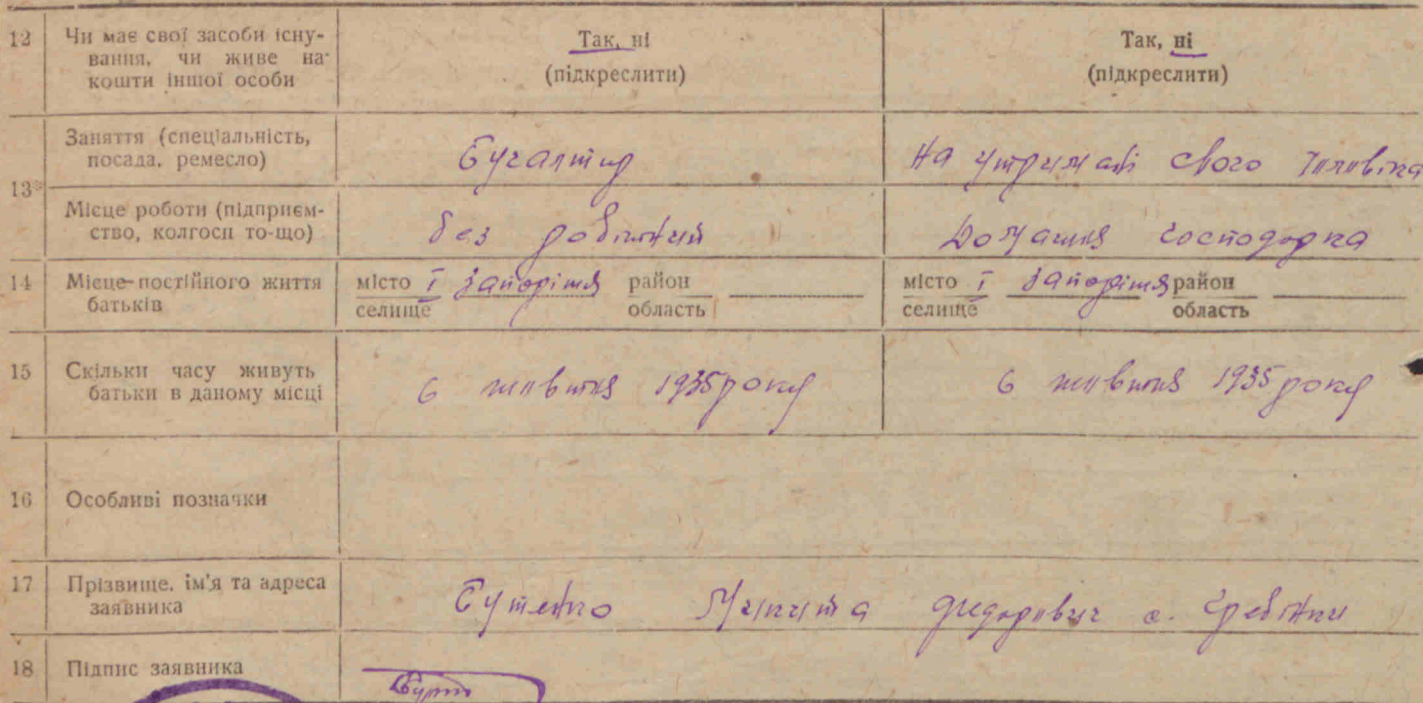 12 Чи має свої засоби існу-
вання, чи живе на
кошти іншої особи
Так, ні
(підкреслити)
Так, ні
(підкреслити)
13 Заняття (спеціальність,
посада, ремесло)
Бугалтир
На утримані свого чоловіка
Місце роботи (підприєм-
ство, колгосп то-що)
без робітний
Домашня господарка
14 Місце постійного життя
батьків
місто І Запоріжжя район
селище область
місто І Запоріжжя район
селище область
15 Скільки часу живуть
батьки в даному місці
6 жовтня 1935 року
6 жовтня 1935 року
16 Особливі позначки
17 Прізвище, ім'я та адреса
заявника
Бутенко Микита Федорович с. Гребінки
18 Підпис заявника